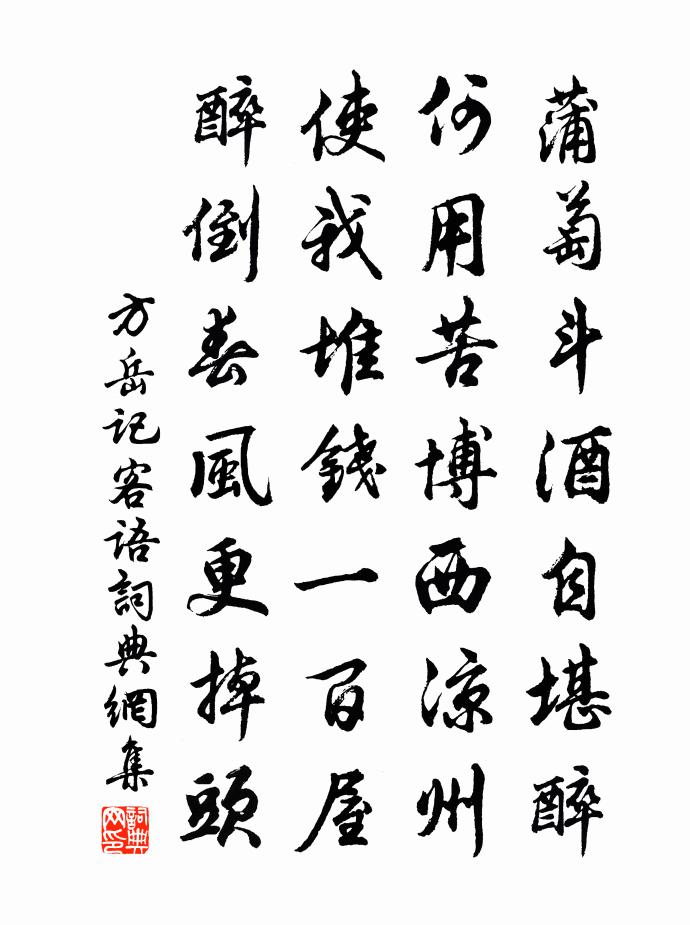 蒲萄斗酒自堪醉
何用苦博西涼州
使我堆錢一百屋
醉倒春風更掉頭
方岳記客語詞典網集
詞典网印